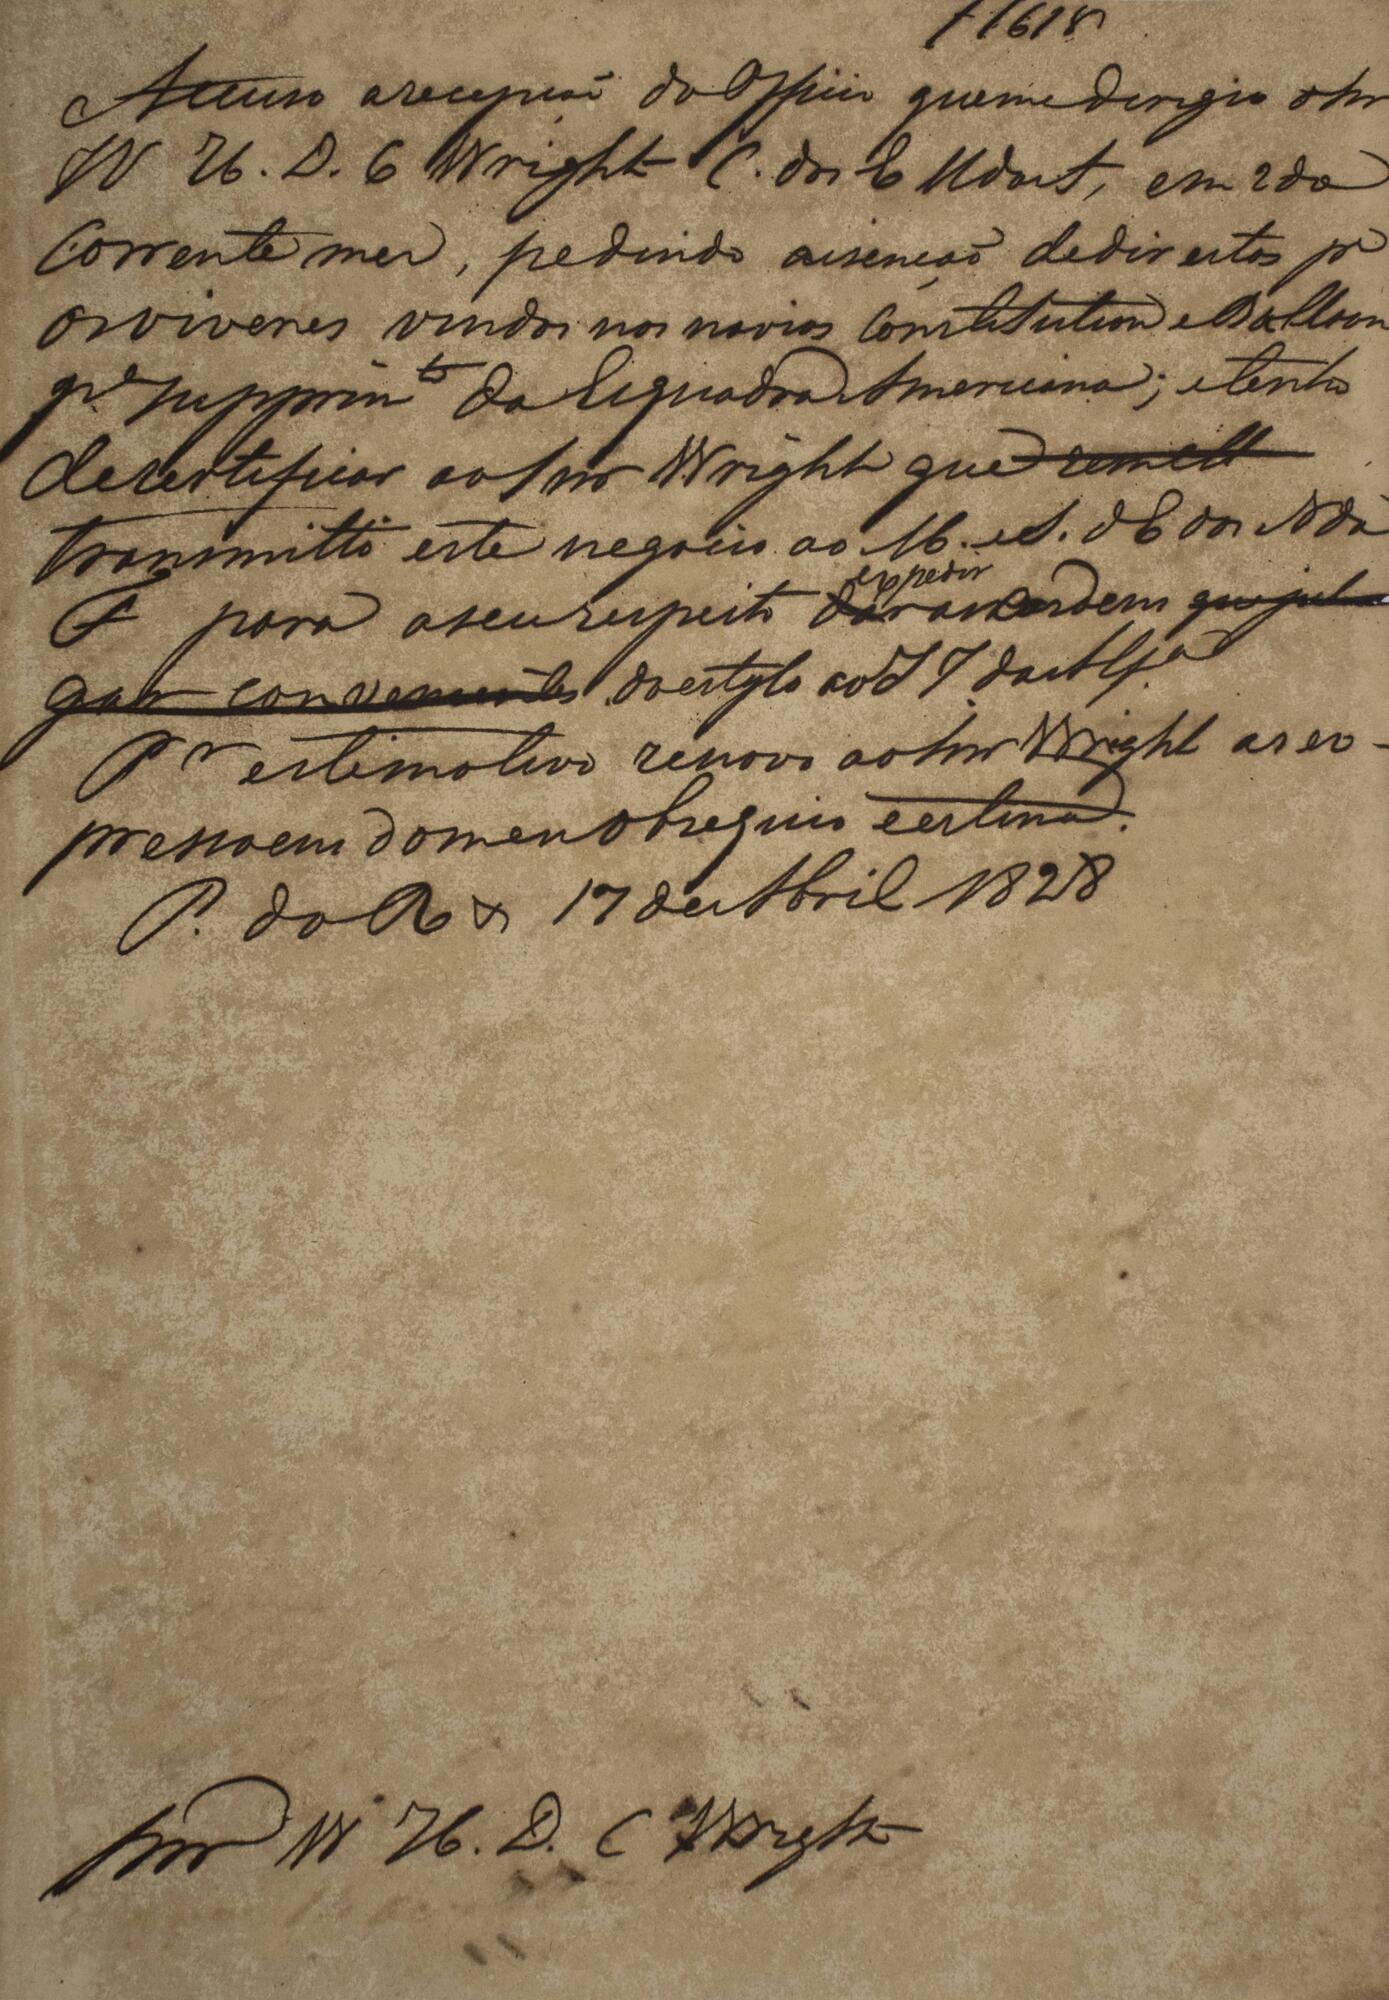 1618
Accuso a recepção do Officio que me dirigio o Snr
W H. D. C Wright C. dos E Udos A, em 2 do
Corrente mez, pedindo a isenção de direitos pa
os viveres vindos nos navios Constitution e Balloon
pa supprimto da Esquadra Americana; e tenho
de certificar ao Snr Wright que remett
transmitto este negocio ao M. e S. d E dos N da
F para a seu respeito dar as expedir ordem que jul
gar convenientes do estylo ao J d Alfa
Pr estimativo renovo ao Snr Wright as ex-
pressoens do meu obsequio e estima.
P. do R 17 de Abril 1828
Snr W H. D. C Wright